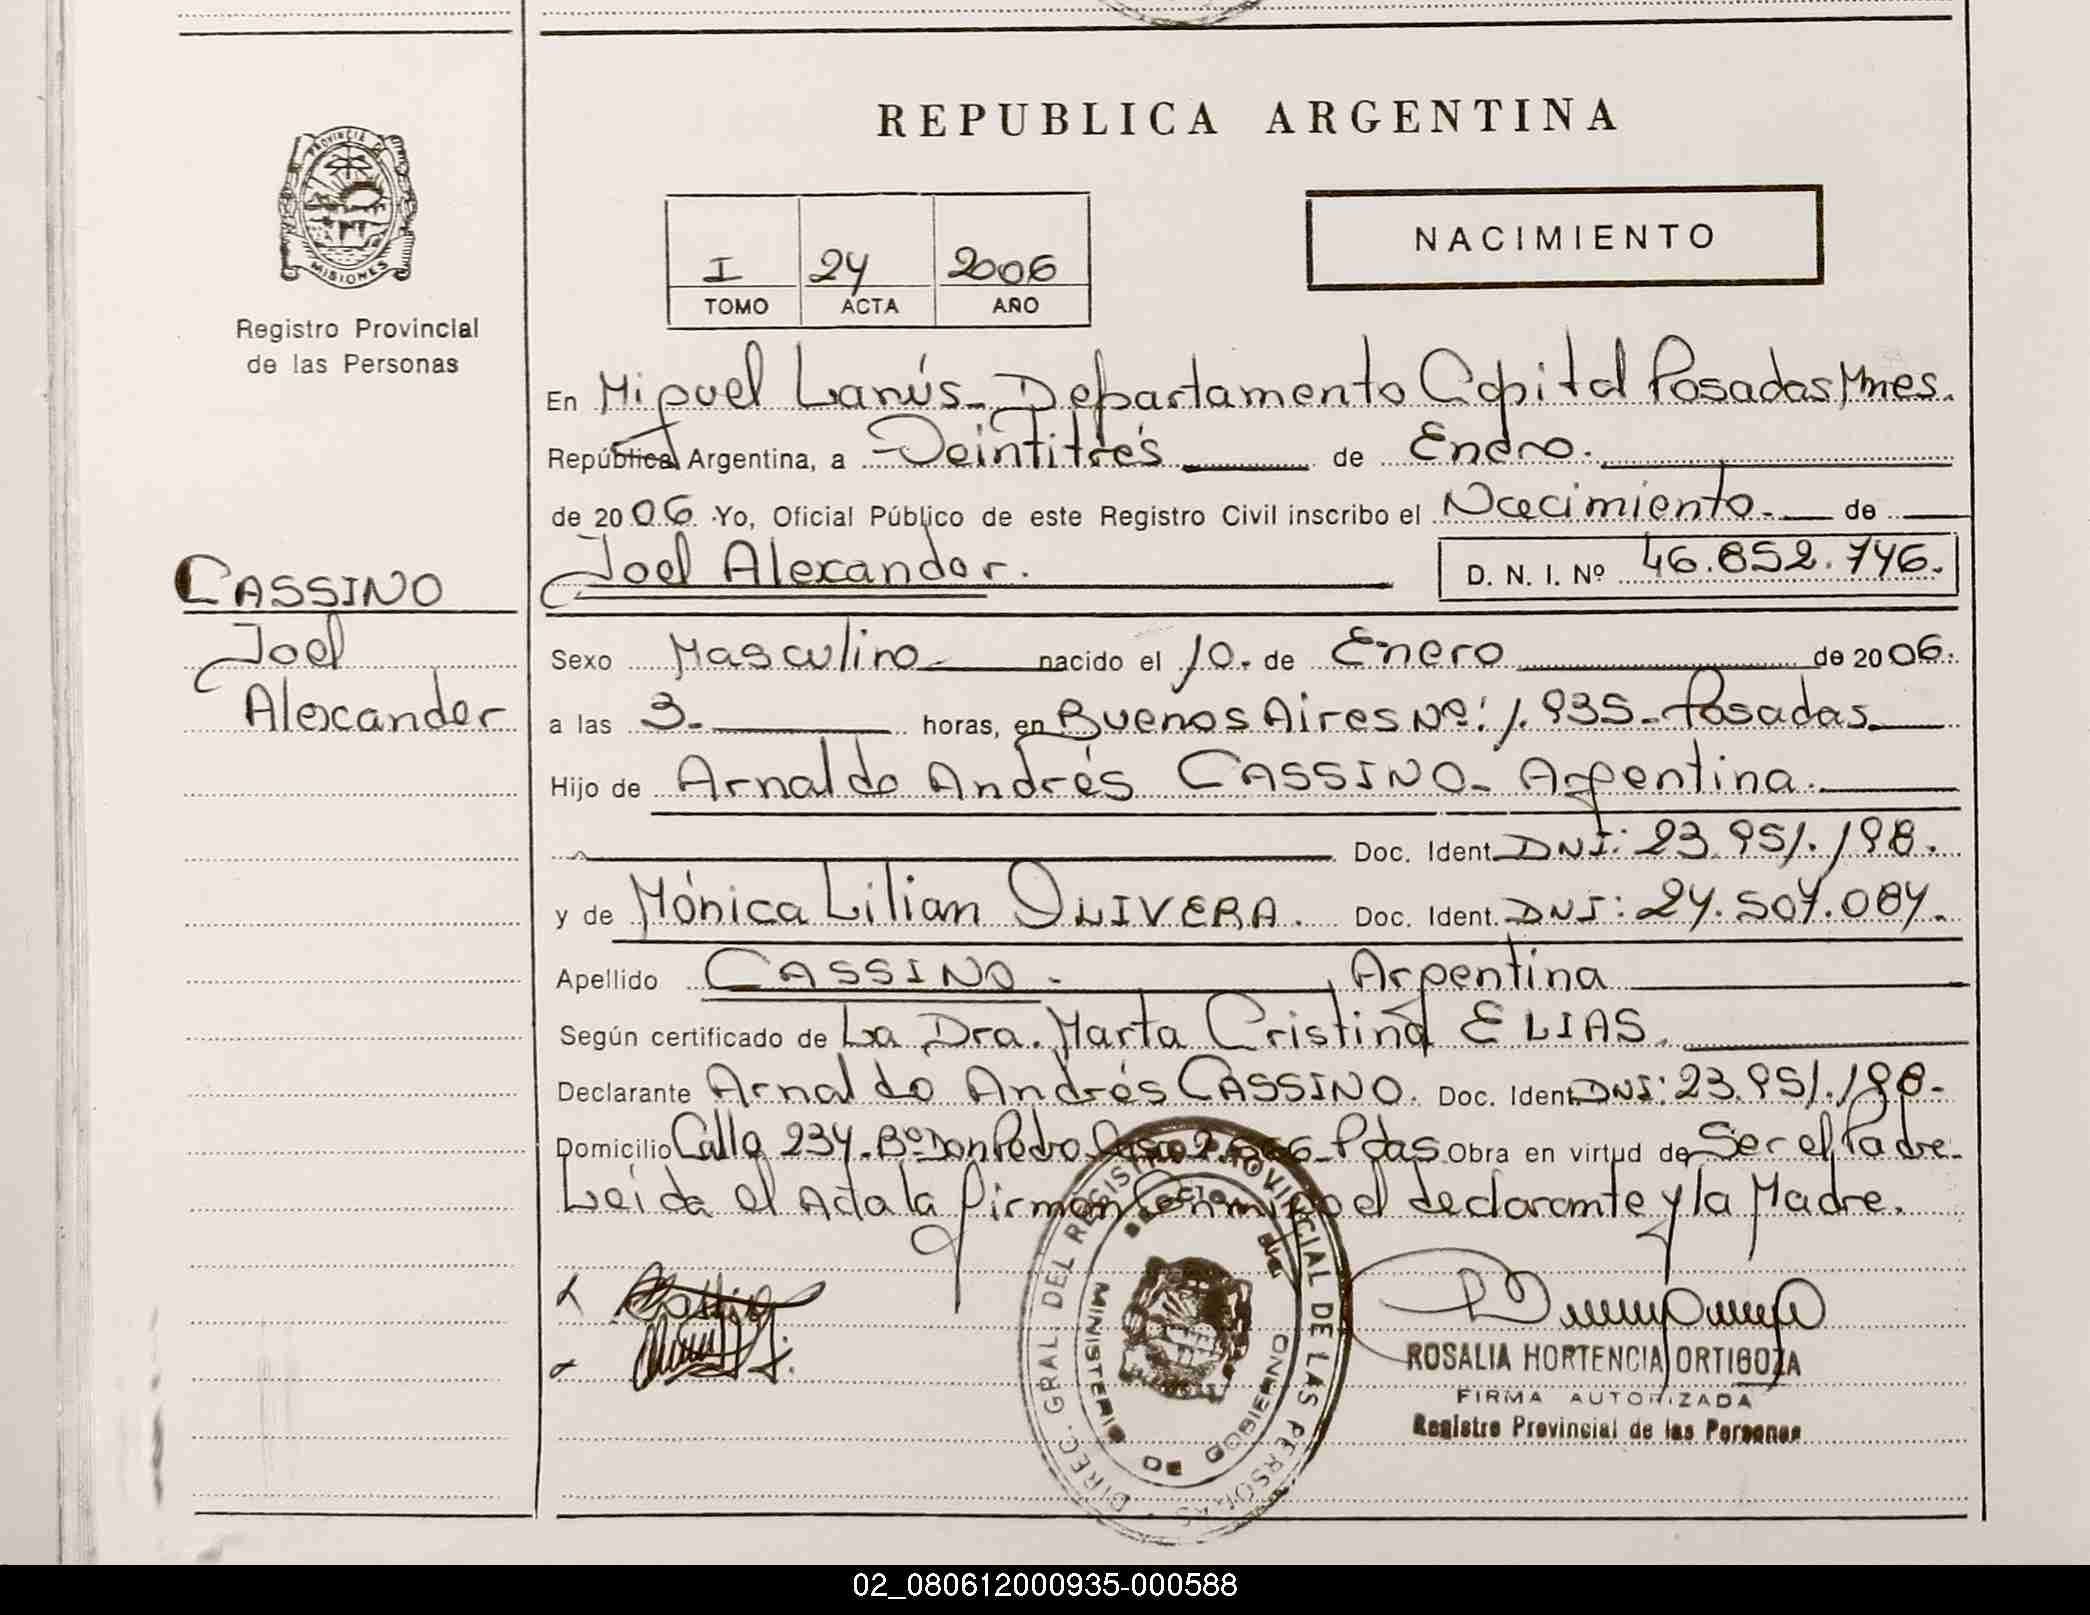 REPUBLICA ARGENTINA
PROVINCIA DE MISIONES
Registro Provincial
de las Personas
NACIMIENTO
I 24 2006
TOMO ACTA AÑO
En Miguel Lanús - Departamento Capital Posadas Mnes.
República Argentina, a Veintitrés de Enero.
de 2006. Yo, Oficial Público de este Registro Civil inscribo el Nacimiento. de
CASSINO
Joel
Alexander
Joel Alexander.
D. N. I. Nº 46.852.746.
Sexo Masculino nacido el 10. de Enero de 2006.
a las 3. horas, en Buenos Aires Nº: 1.935 - Posadas
Hijo de Arnaldo Andrés CASSINO - Argentina.
Doc. Ident. DNI: 23.951.198.
y de Mónica Lilian OLIVERA. Doc. Ident. DNI: 24.504.084.
Apellido CASSINO. Argentina
Según certificado de La Dra. Marta Cristina ELIAS.
Declarante Arnaldo Andrés CASSINO. Doc. Ident. DNI: 23.951.198.
Domicilio Calle 234. Bº Don Pedro Casa Pdas Obra en virtud de Ser el Padre.
Leida el Acta la firman Conmigo el declarante y la Madre.
DIREC. GRAL. DEL REGISTRO PROVINCIAL DE LAS PERSONAS
MINISTERIO DE GOBIERNO
ROSALIA HORTENCIA ORTIGOZA
FIRMA AUTORIZADA
Registro Provincial de las Personas
02_080612000935-000588